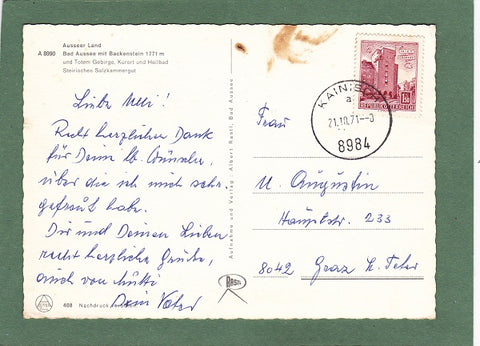 Ausseer Land
A 8990 Bad Aussee mit Backenstein 1771 m
und Totem Gebirge, Kurort und Heilbad
Steirisches Salzkammergut
Liebe
Recht herzlichen Dank
für Deine lb. Wünsche,
über die ich mich sehr
gefreut habe.
Dir und Deinen Lieben
recht herzliche Grüße,
auch von Mutti
Dein Vater
408 Nachdruck
Aufnahme und Verlag Albert Rastl, Bad Aussee
KAINISCH
a
21.10.71--0
8984
REPUBLIK ÖSTERREICH
Frau
M. Augustin
Hauptstr. 233
8042 Graz St. Peter